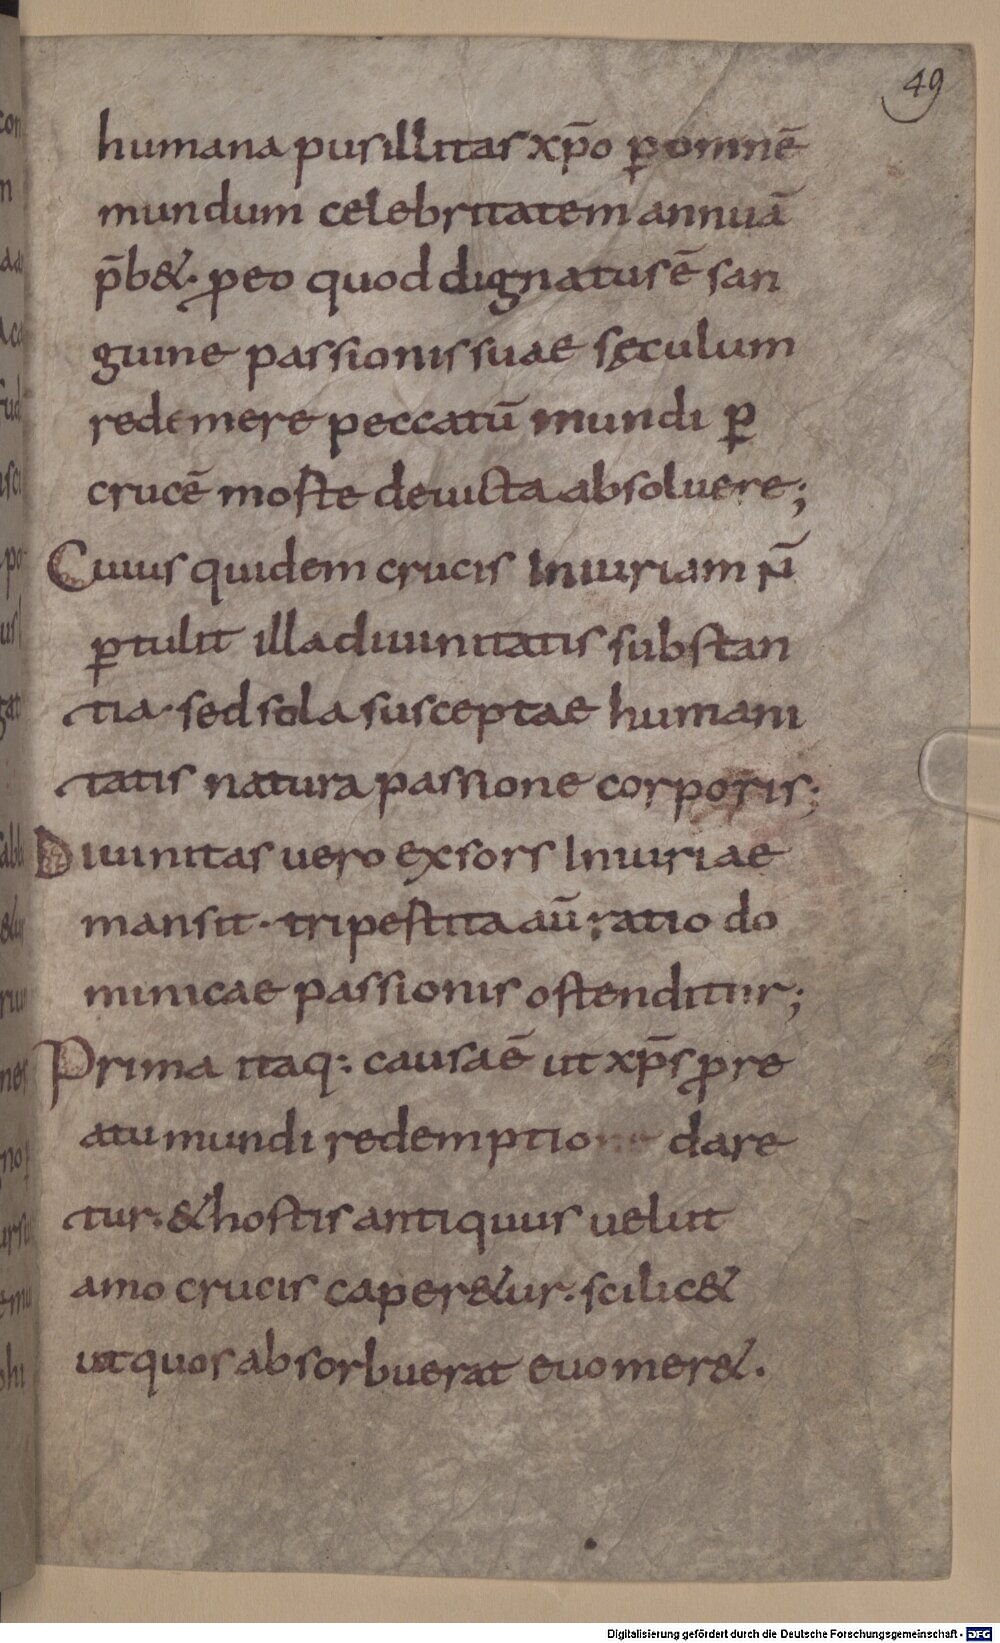 49
humana pusillitas xp̄o ꝑ omnē
mundum celebritatem annuā
p̄b&. ꝓ eo quod dignatus ē san
guine passionis suae sęculum
redemere peccatū mundi ꝑ
crucē moste deuicta absoluere;
Cuius quidem crucis Iniuriam ñ
ꝑtulit illa diuinitatis substan
tia. sed sola susceptae humani
tatis natura passione corporis;
Diuinitas uero exsors Iniuriae
mansit. tripestita aū ratio do
minicae passionis ostenditur;
Prima itaq: causa ē ut xp̄s ꝓ re
atu mundi redemptione dare
tur. & hostis antiquus uelut
amo crucis caper&ur. scilic&
ut quos absorbuerat euomer&.
Digitalisierung gefördert durch die Deutsche Forschungsgemeinschaft - DFG